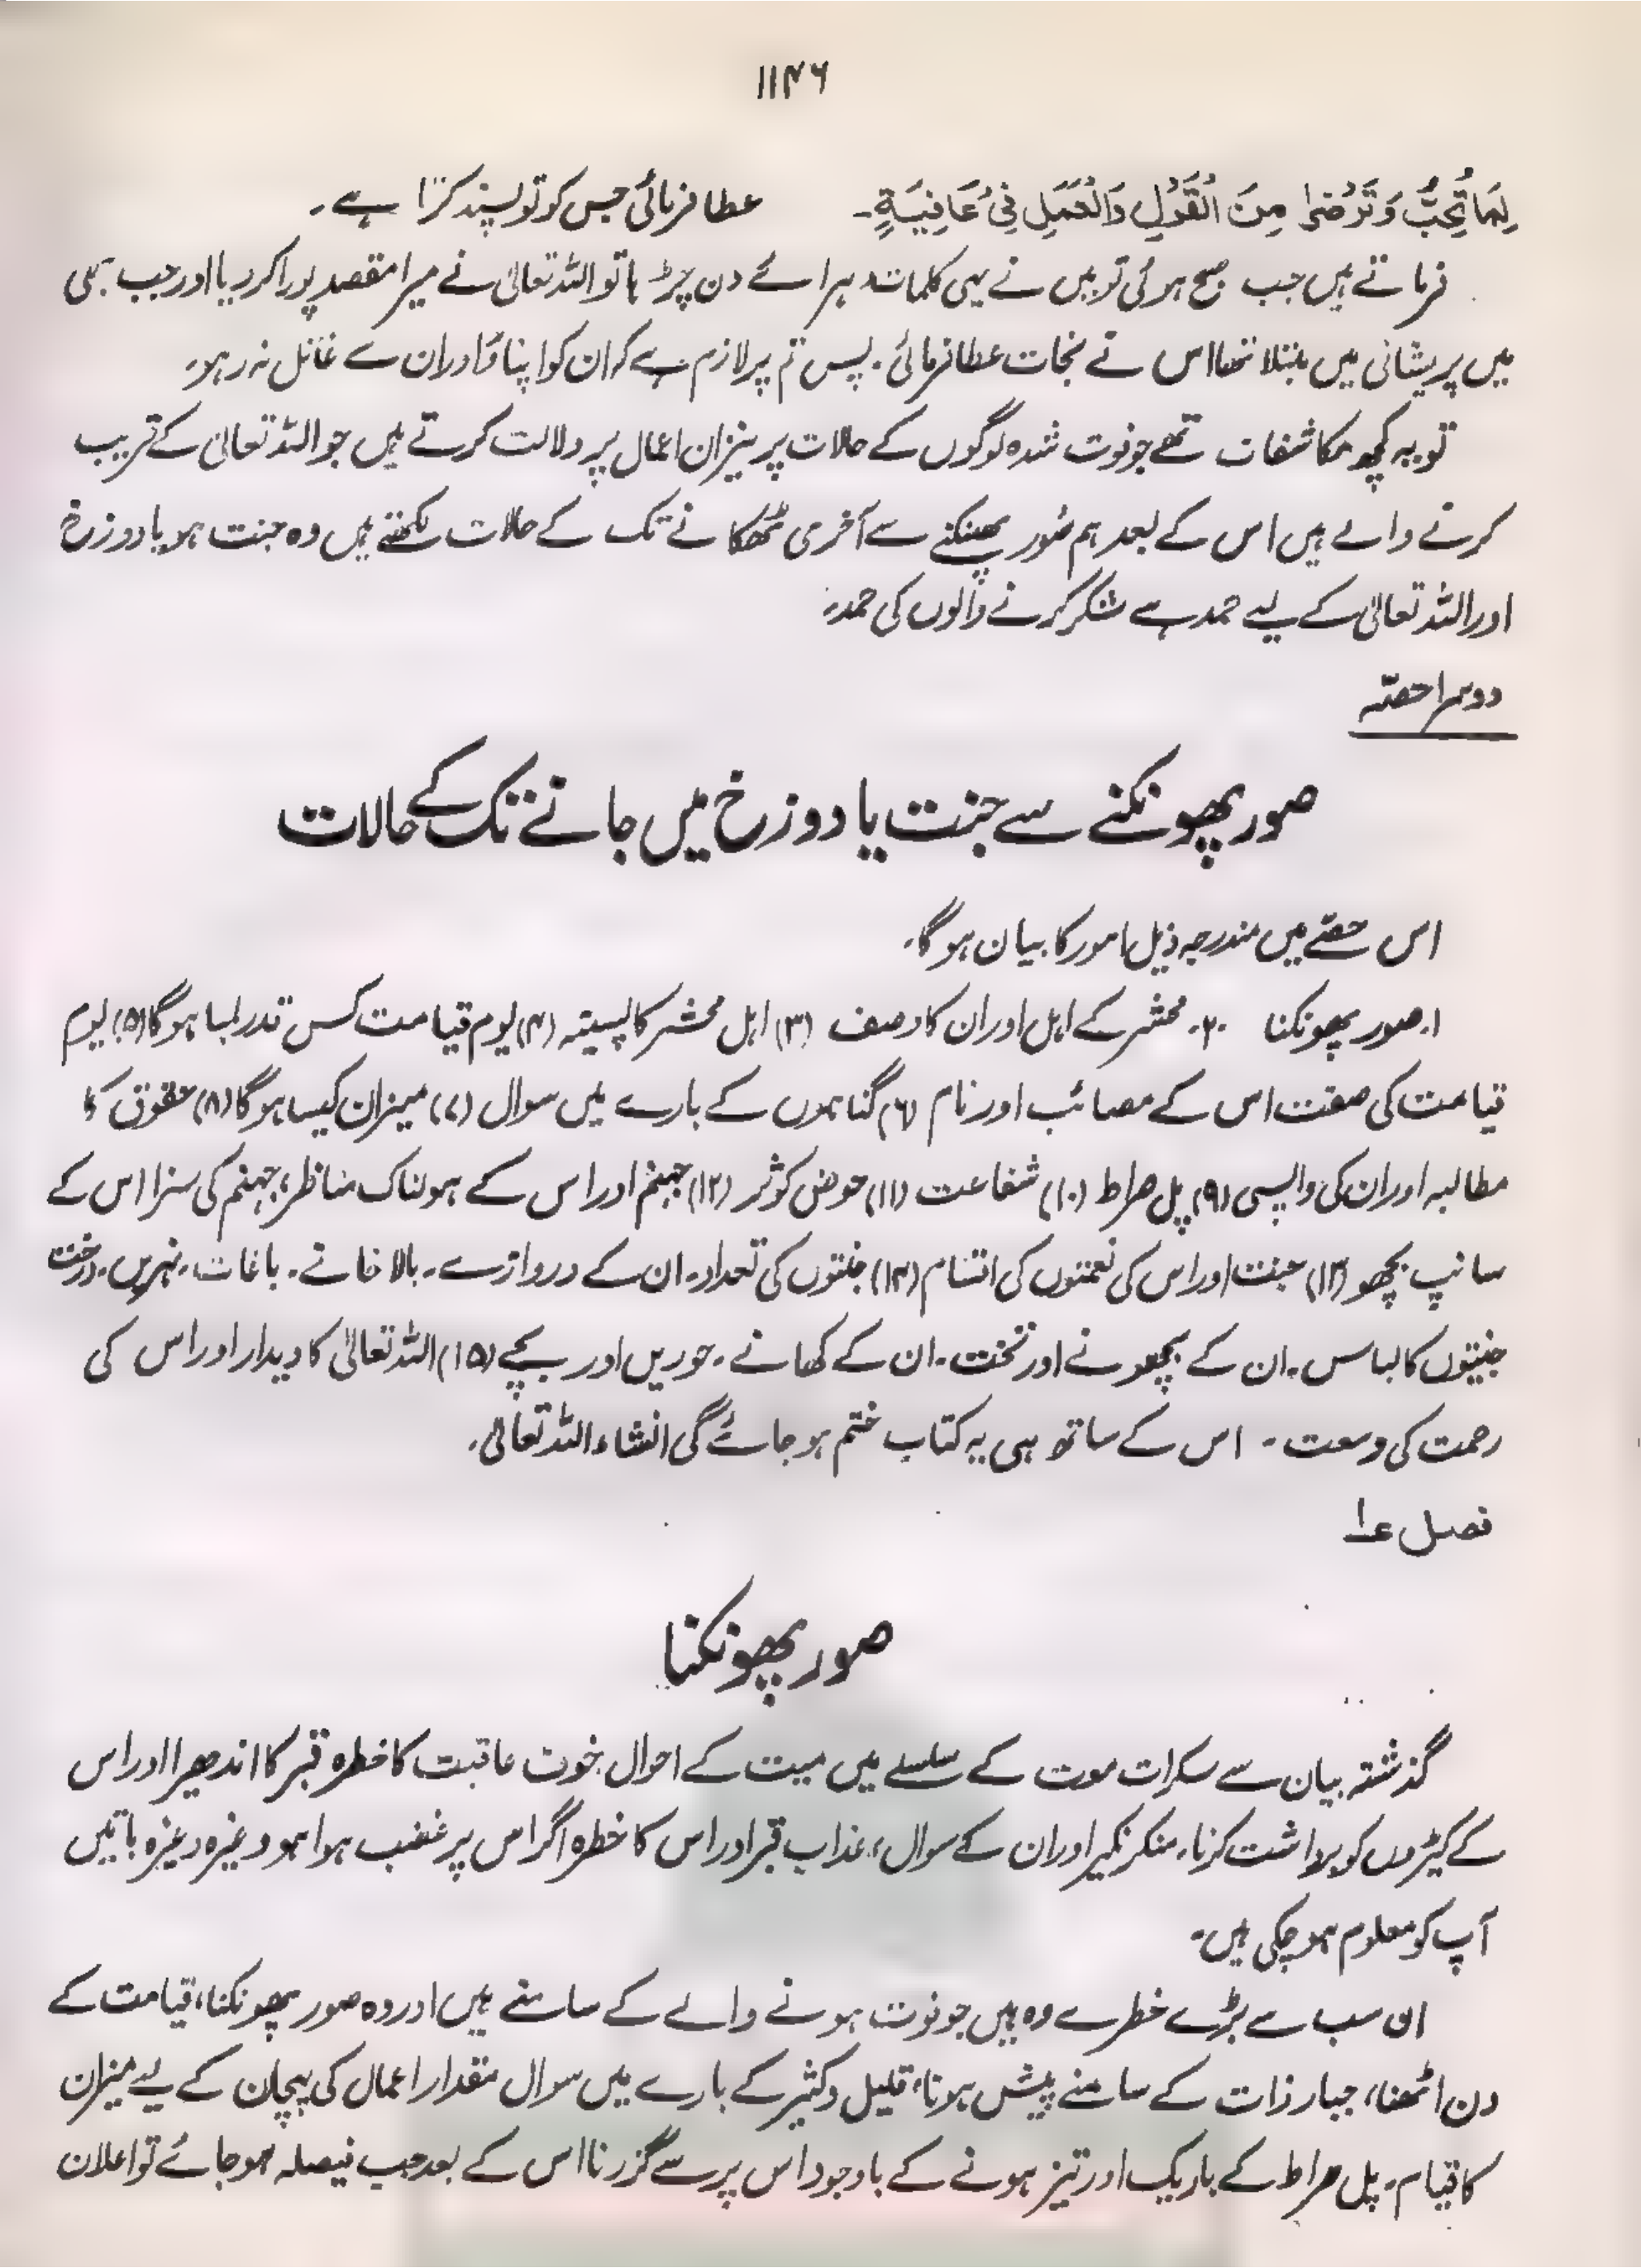 ۱۱۴۶
لِمَا تُحِبُّ وَتَرْضٰی مِنَ الْقَوْلِ وَالْعَمَلِ فِیْ عَافِیَۃٍ۔ عطا فرمائی جس کو تو پسند کرتا ہے۔
فرماتے ہیں جب صبح ہوئی تو میں نے یہی کلمات دہرائے دن چڑھا تو اللہ تعالیٰ نے میرا مقصد پورا کر دیا اور جب بھی
میں پریشانی میں مبتلا تھا اس نے نجات عطا فرمائی۔ پس تم پر لازم ہے کہ ان کو اپناؤ اور ان سے غافل نہ رہو۔
تو یہ کچھ مکاشفات تھے جو فوت شدہ لوگوں کے حالات پر نیز ان اعمال پر دلالت کرتے ہیں جو اللہ تعالیٰ کے قریب
کرنے والے ہیں اس کے بعد ہم صور پھونکنے سے آخری ٹھکانے تک کے حالات لکھتے ہیں وہ جنت ہو یا دوزخ
اور اللہ تعالیٰ کے لیے حمد ہے شکر کرنے والوں کی حمد۔
دوسرا حصّہ
صور پھونکنے سے جنت یا دوزخ میں جانے تک کے حالات
اس حصّے میں مندرجہ ذیل امور کا بیان ہوگا۔
۱۔ صور پھونکنا ۲۔ محشر کے اہل اور ان کا وصف (۳) اہل محشر کا پسینہ (۴) یوم قیامت کس قدر لمبا ہوگا (۵) یوم
قیامت کی صفت اس کے مصائب اور نام (۶) گناہوں کے بارے میں سوال (۷) میزان کیسا ہوگا (۸) حقوق کا
مطالبہ اور ان کی واپسی (۹) پل صراط (۱۰) شفاعت (۱۱) حوض کوثر (۱۲) جہنم اور اس کے ہولناک مناظر، جہنم کی سزا اس کے
سانپ بچھو (۱۳) جنت اور اس کی نعمتوں کی اقسام (۱۴) جنتوں کی تعداد۔ ان کے دروازے۔ بالا خانے۔ باغات۔ نہریں۔ درخت
جنتیوں کا لباس۔ ان کے بچھونے اور تخت۔ ان کے کھانے۔ حوریں اور بچے (۱۵) اللہ تعالیٰ کا دیدار اور اس کی
رحمت کی وسعت۔ اس کے ساتھ ہی یہ کتاب ختم ہو جائے گی انشاء اللہ تعالیٰ۔
فصل ع۱
صور پھونکنا
گذشتہ بیان سے سکرات موت کے سلسلے میں میت کے احوال خوف عاقبت کا خطرہ قبر کا اندھیرا اور اس
کے کیڑوں کو برداشت کرنا، منکر نکیر اور ان کے سوال، عذاب قبر اور اس کا خطرہ اگر اس پر غضب ہوا ہو وغیرہ وغیرہ باتیں
آپ کو معلوم ہو چکی ہیں۔
ان سب سے بڑے خطرے وہ ہیں جو فوت ہونے والے کے سامنے ہیں اور وہ صور پھونکنا، قیامت کے
دن اٹھنا، جبار ذات کے سامنے پیش ہونا، قلیل و کثیر کے بارے میں سوال مقدار اعمال کی پہچان کے لیے میزان
کا قیام۔ پل صراط کے باریک اور تیز ہونے کے باوجود اس پر سے گزرنا اس کے بعد جب فیصلہ ہو جائے تو اعلان